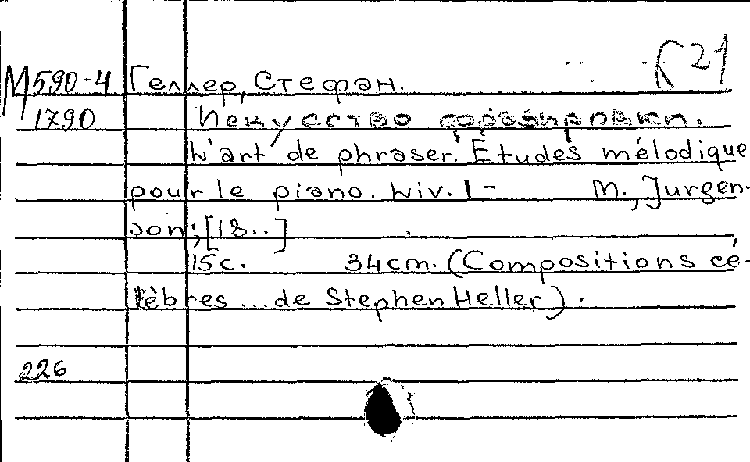 М590-4 Геллер, Стефан.
1790 Искусство фразировки.
L'art de phraser. Études mélodique
pour le piano. Liv. 1- М., Jurgen-
son; [18..]
15с. 34cm. (Compositions cé-
lèbres ... de Stephen Heller).
226